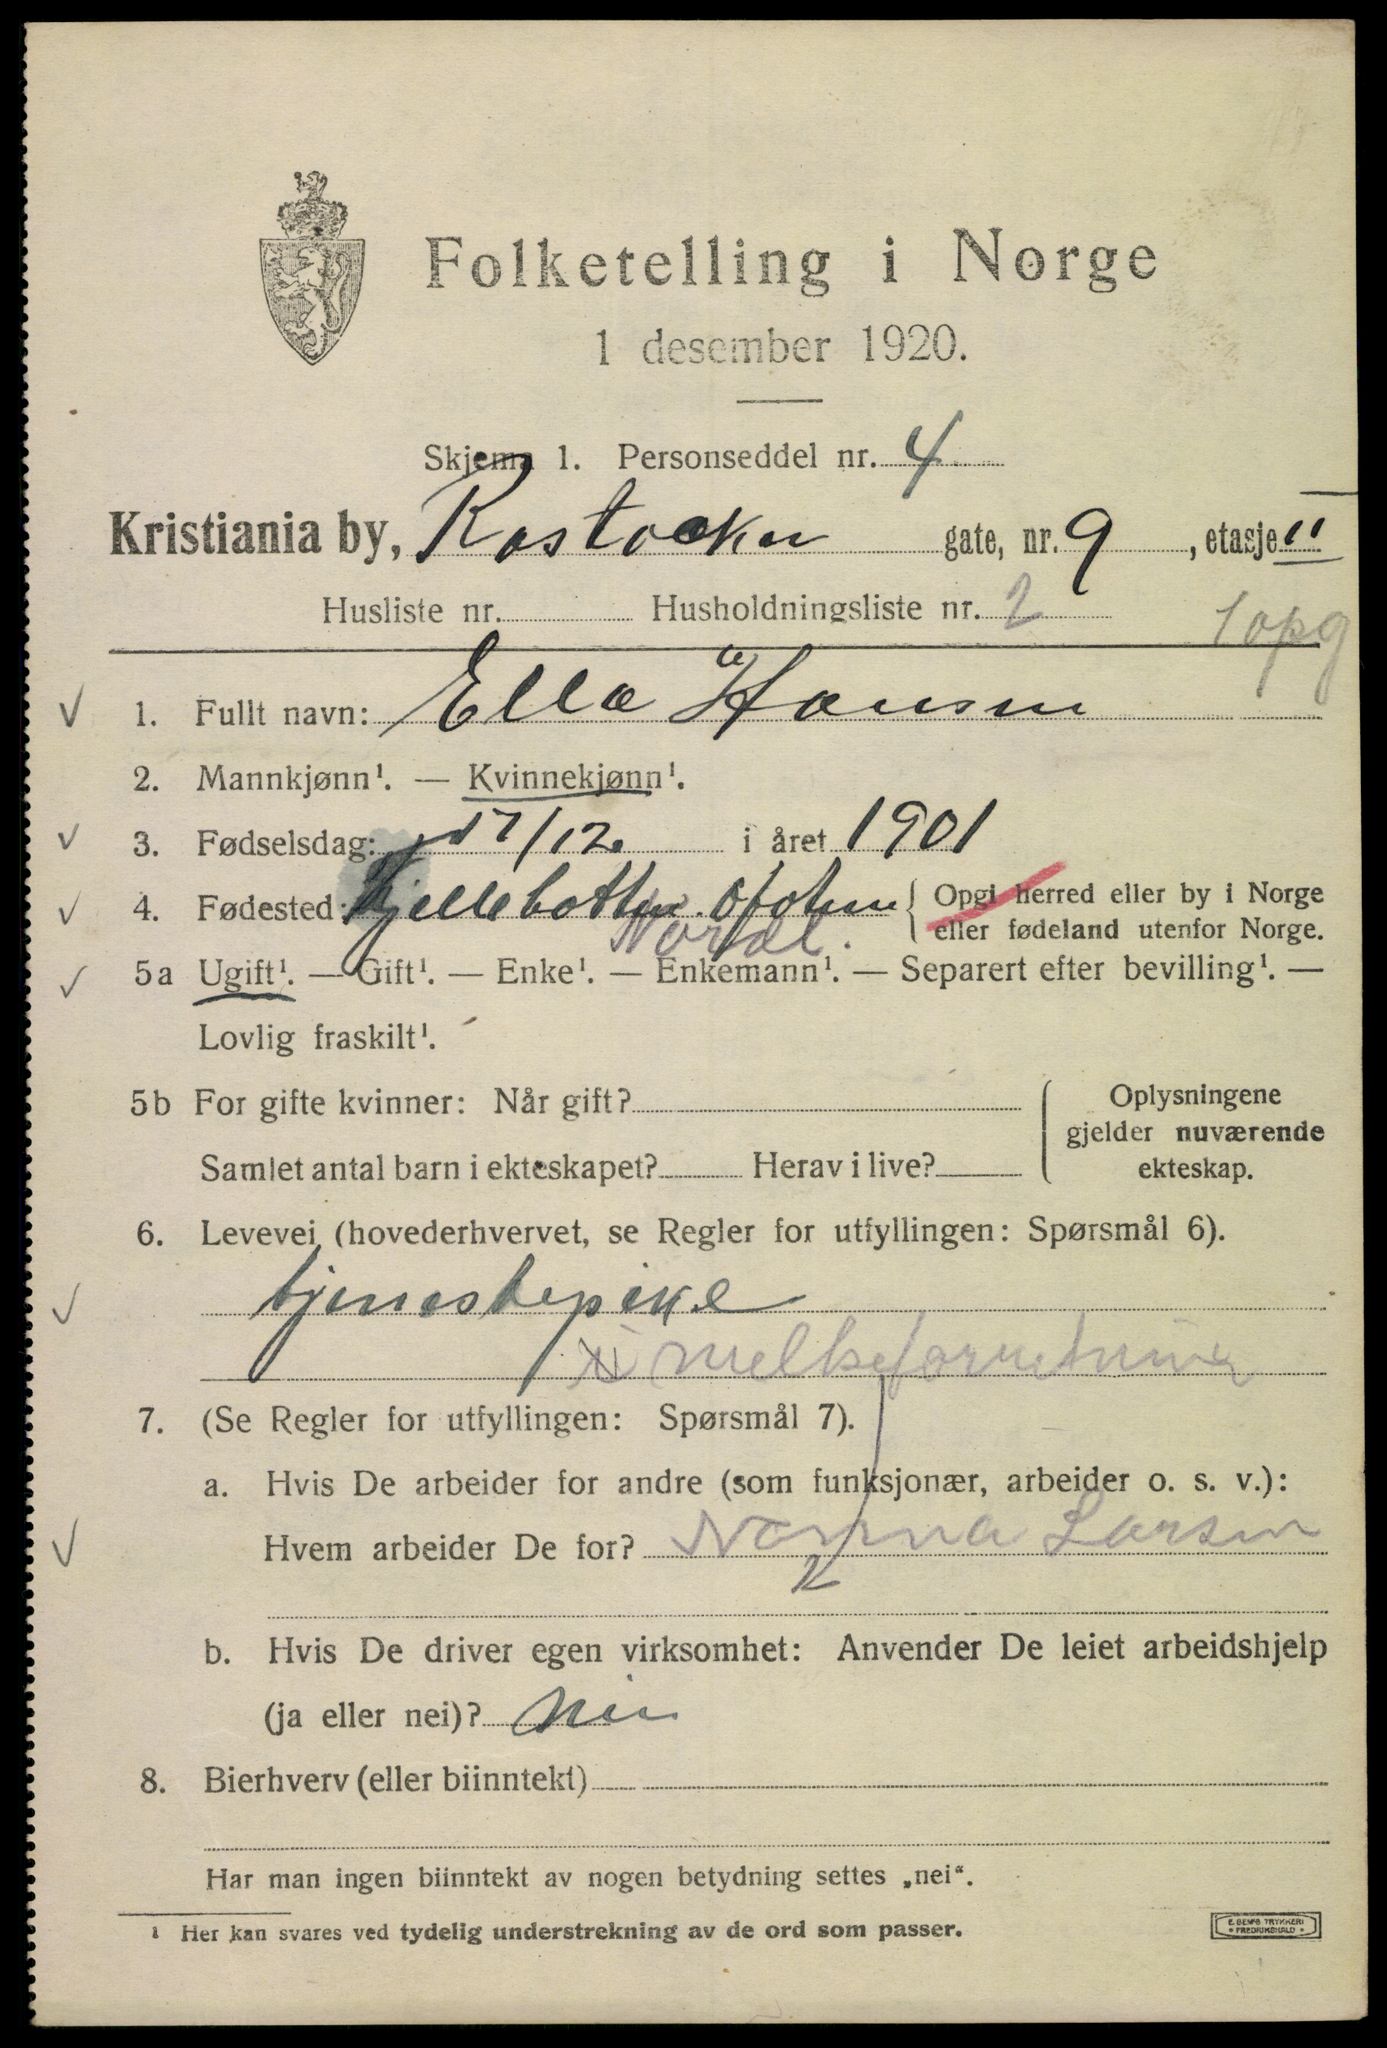 Folketelling i Norge
1 desember 1920.
Skjema 1. Personseddel nr. 4
Kristiania by, Rostocker gate, nr. 9, etasje II
Husliste nr. Husholdningsliste nr. 2 1 opg
1. Fullt navn: Ella Hansen
2. Mannkjønn¹. — Kvinnekjønn¹.
3. Fødselsdag: 17/12 i året 1901
4. Fødested: Kjellebotten Ofoten { Opgi herred eller by i Norge
Nordl. eller fødeland utenfor Norge.
5a Ugift¹. — Gift¹. — Enke¹. — Enkemann¹. — Separert efter bevilling¹. —
Lovlig fraskilt¹.
5b For gifte kvinner: Når gift? { Oplysningene
gjelder nuværende
Samlet antal barn i ekteskapet? Herav i live? ekteskap.
6. Levevei (hovederhvervet, se Regler for utfyllingen: Spørsmål 6).
tjenestepike
i melkeforretning
7. (Se Regler for utfyllingen: Spørsmål 7).
a. Hvis De arbeider for andre (som funksjonær, arbeider o. s. v.):
Hvem arbeider De for? Nanna Larsen
b. Hvis De driver egen virksomhet: Anvender De leiet arbeidshjelp
(ja eller nei)? nei
8. Bierhverv (eller biinntekt)
Har man ingen biinntekt av nogen betydning settes „nei“.
¹ Her kan svares ved tydelig understrekning av de ord som passer.
E. SEM'S TRYKKERI
FREDRIKSHALD